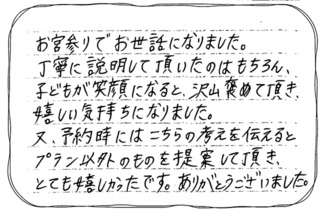 お宮参りでお世話になりました。
丁寧に説明して頂いたのはもちろん、
子どもが笑顔になると、沢山褒めて頂き、
嬉しい気持ちになりました。
又、予約時にはこちらの考えを伝えると
プラン以外のものを提案して頂き、
とても嬉しかったです。ありがとうございました。